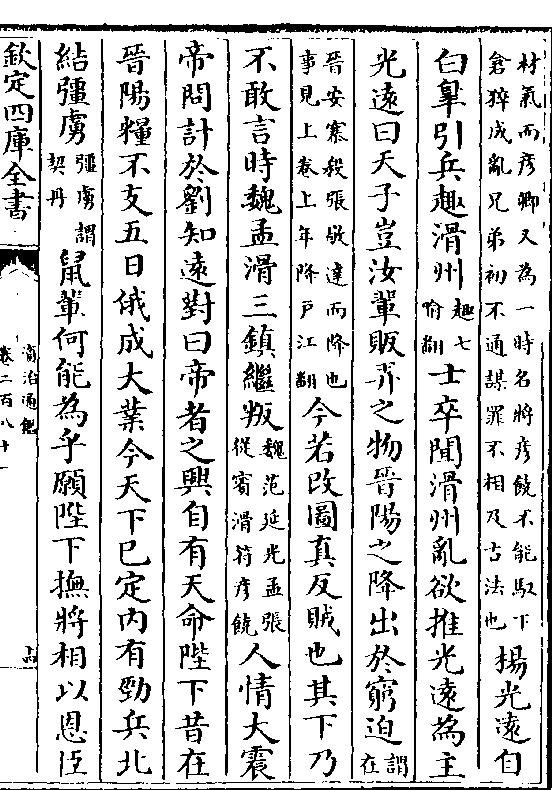 材氣而彥卿又為一時名將彥饒不能馭下倉猝成亂兄弟初不通謀罪不相及古法也楊光遠自
白臯引兵趣滑州趣七喻翻士卒聞滑州亂欲推光遠為主
光遠曰天子豈汝輩販弄之物晉陽之降出於窮迫謂在
晉安寨殺張敬達而降也事見上卷上年降戶江翻今若改圖真反賊也其下乃
不敢言時魏孟滑三鎮繼叛魏范延光孟張從賓滑符彥饒人情大震
帝問計於劉知遠對曰帝者之興自有天命陛下昔在
晉陽糧不支五日俄成大業今天下已定内有勁兵北
結彊虜彊虜謂契丹鼠輩何能為乎願陛下撫將相以恩臣
欽定四庫全書
資治通鑑
卷二百八十一